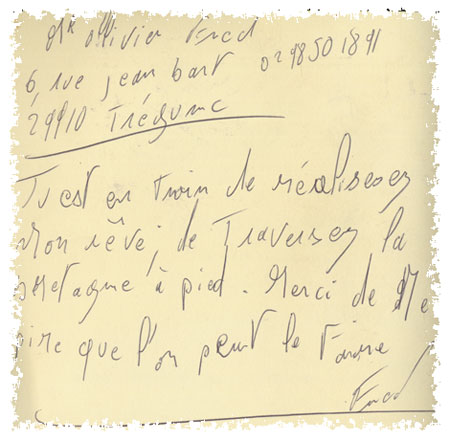 Mr Ollivier Fred
6, rue jean bart 02 98 50 18 91
29910 Trégunc
Tu est en train de réaliser
Mon rêve, de Traverser la
Bretagne à pied. Merci de Me
dire que l'on peut le faire
Fred